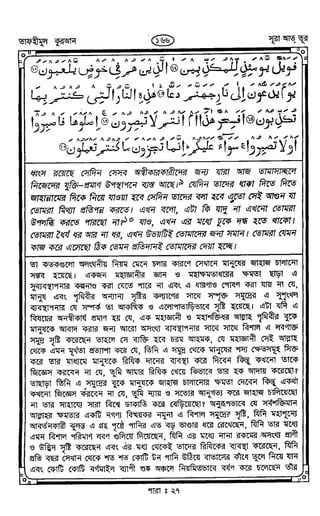 তাফহীমুল কুরআন ১৬৬ সূরা আত্ তূর
فَوَيْلٌ يَوْمَئِذٍ لِّلْمُكَذِّبِينَ ۝ الَّذِينَ هُمْ فِي خَوْضٍ يَلْعَبُونَ ۝
يَوْمَ يُدَعُّونَ إِلَىٰ نَارِ جَهَنَّمَ دَعًّا ۝ هَٰذِهِ النَّارُ الَّتِي كُنْتُمْ بِهَا
تُكَذِّبُونَ ۝ أَفَسِحْرٌ هَٰذَا أَمْ أَنْتُمْ لَا تُبْصِرُونَ ۝ اصْلَوْهَا فَاصْبِرُوا
أَوْ لَا تَصْبِرُوا سَوَاءٌ عَلَيْكُمْ إِنَّمَا تُجْزَوْنَ مَا كُنْتُمْ تَعْمَلُونَ ۝
ধ্বংস রয়েছে সেদিন সেসব অস্বীকারকারীদের জন্য যারা আজ তামাসাচ্ছলে
নিজেদের যুক্তি-প্রমাণ উপস্থাপনে ব্যস্ত আছে। যেদিন তাদের ধাক্কা দিতে দিতে
জাহান্নামের দিকে নিয়ে যাওয়া হবে সেদিন তাদের বলা হবে এতো সেই আগুন যা
তোমরা মিথ্যা প্রতিপন্ন করতে। এখন বলো, এটা কি যাদু না এখনো তোমরা
উপলব্ধি করতে পারছো না? যাও, এখন এর মধ্যে ঢুকে দগ্ধ হতে থাকো।
তোমরা ধৈর্য ধর আর না ধর, এখন উভয়টিই তোমাদের জন্য সমান। তোমরা যেমন
কাজ করে এসেছো ঠিক তেমন প্রতিদানই তোমাদের দেয়া হচ্ছে।
তা কতকগুলো অলংঘনীয় নিয়ম মেনে চলার কারণে সেখানে মানুষের জাহাজ চালানো
সম্ভব হয়েছে। একজন মহাজ্ঞানীর জ্ঞান ও মহাক্ষমতাধরের ক্ষমতা ছাড়া এ
সুব্যবস্থাপনার কল্পনাও করা যেতে পারে না এবং এ ধারণাও পোষণ করা যায় না যে,
মানুষ এবং পৃথিবীর অন্যান্য সৃষ্টির কল্যাণের সাথে সম্পৃক্ত সমুদ্রের এ সুশৃংখল
ব্যবস্থাপনার যে সম্পর্ক তা আকস্মিক ও এলোপাতাড়িভাবে সৃষ্টি হয়েছে। এটা যদি এ
বিষয়ের অনস্বীকার্য প্রমাণ হয় যে, এক মহাজ্ঞানী ও মহাশক্তিধর আল্লাহ পৃথিবীর বুকে
মানুষকে আবাদ করার জন্য আরো অসংখ্য ব্যবস্থাপনার সাথে সাথে বিশাল এ লবণাক্ত
সমুদ্র সৃষ্টি করেছেন তাহলে সে ব্যক্তি হবে চরম আহমক, যে মহাজ্ঞানী সেই আল্লাহ
থেকে এমন মূর্খতা প্রত্যাশা করে যে, তিনি এ সমুদ্র থেকে মানুষের শস্য ক্ষেতসমূহ সিক্ত
করে তার মাধ্যমে মানুষকে রিযিক দানের ব্যবস্থা করে দিবেন কিন্তু কখনো তাকে
জিজ্ঞেস করবেন না যে, তুমি আমার রিযিক খেয়ে কিভাবে তার হক আদায় করেছো।
তাছাড়া তিনি এ সমুদ্রের বুকে মানুষকে জাহাজ চালানোর ক্ষমতা দেবেন কিন্তু একথা
কখনো জিজ্ঞেস করবেন না যে, তুমি ন্যায় ও সত্যের আনুগত্য করে জাহাজ চালিয়েছো
না তার সাহায্যে সারা বিশ্বে ডাকাতি করে বেড়িয়েছো। অনুরূপভাবে যে সর্বশক্তিমান
আল্লাহর ক্ষমতার একটি নগণ্য বিস্ময়কর নমুনা এ বিশাল সমুদ্রের সৃষ্টি, যিনি মহাশূন্যে
আবর্তনকারী ঝুলন্ত এ গ্রহ পৃষ্ঠে পানির এত বড় ভাণ্ডার ধরে রেখেছেন, যিনি তার মধ্যে
এমন বিশাল পরিমাণ লবণ গুলিয়ে দিয়েছেন, যিনি এর মধ্যে নানা রকমের অসংখ্য প্রাণী
ও উদ্ভিদ সৃষ্টি করেছেন এবং এর মধ্য থেকেই তাদের রিযিকের ব্যবস্থা করেছেন, যিনি
প্রতি বছর সেখান থেকে শত শত কোটি টন পানি উঠিয়ে বাতাসের কাঁধে তুলে নিয়ে যান
এবং কোটি কোটি বর্গমাইল ব্যাপী শুষ্ক অঞ্চলে নিয়মিতভাবে বর্ষণ করে চলেছেন তাঁর
পারা ঃ ২৭